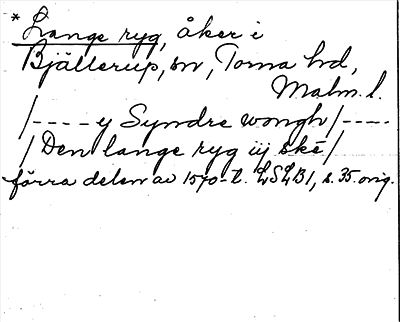 * Lange ryg, åker i
Bjällerup, sn, Torna hd,
Malm. l.
/---- y Syndre wongh/----
/Den lange ryg iij ske/
förra delen av 1570-t. LSLB1, s. 35. orig.